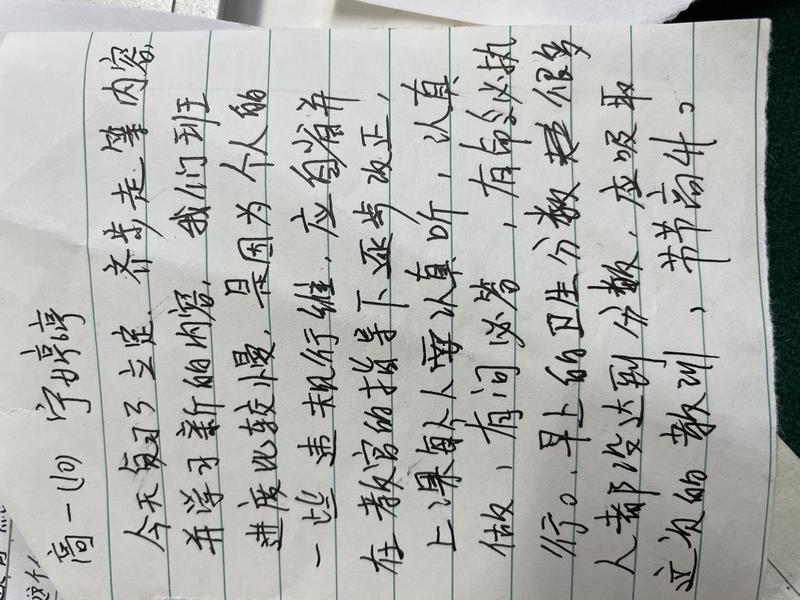 高一(10) 宁婷婷
今天复习了立定、齐步走等内容
并学习新的内容，我们班
进度比较慢，是因为个人的
一些违规行继，应自省并
在教官的指导下逐步改正，
上课每个人要认真听，认真
做，有问必答，有命必执
行。早上的卫生分数很多
人都没达到分数，应吸取
这次的教训，节节高升。
这个，